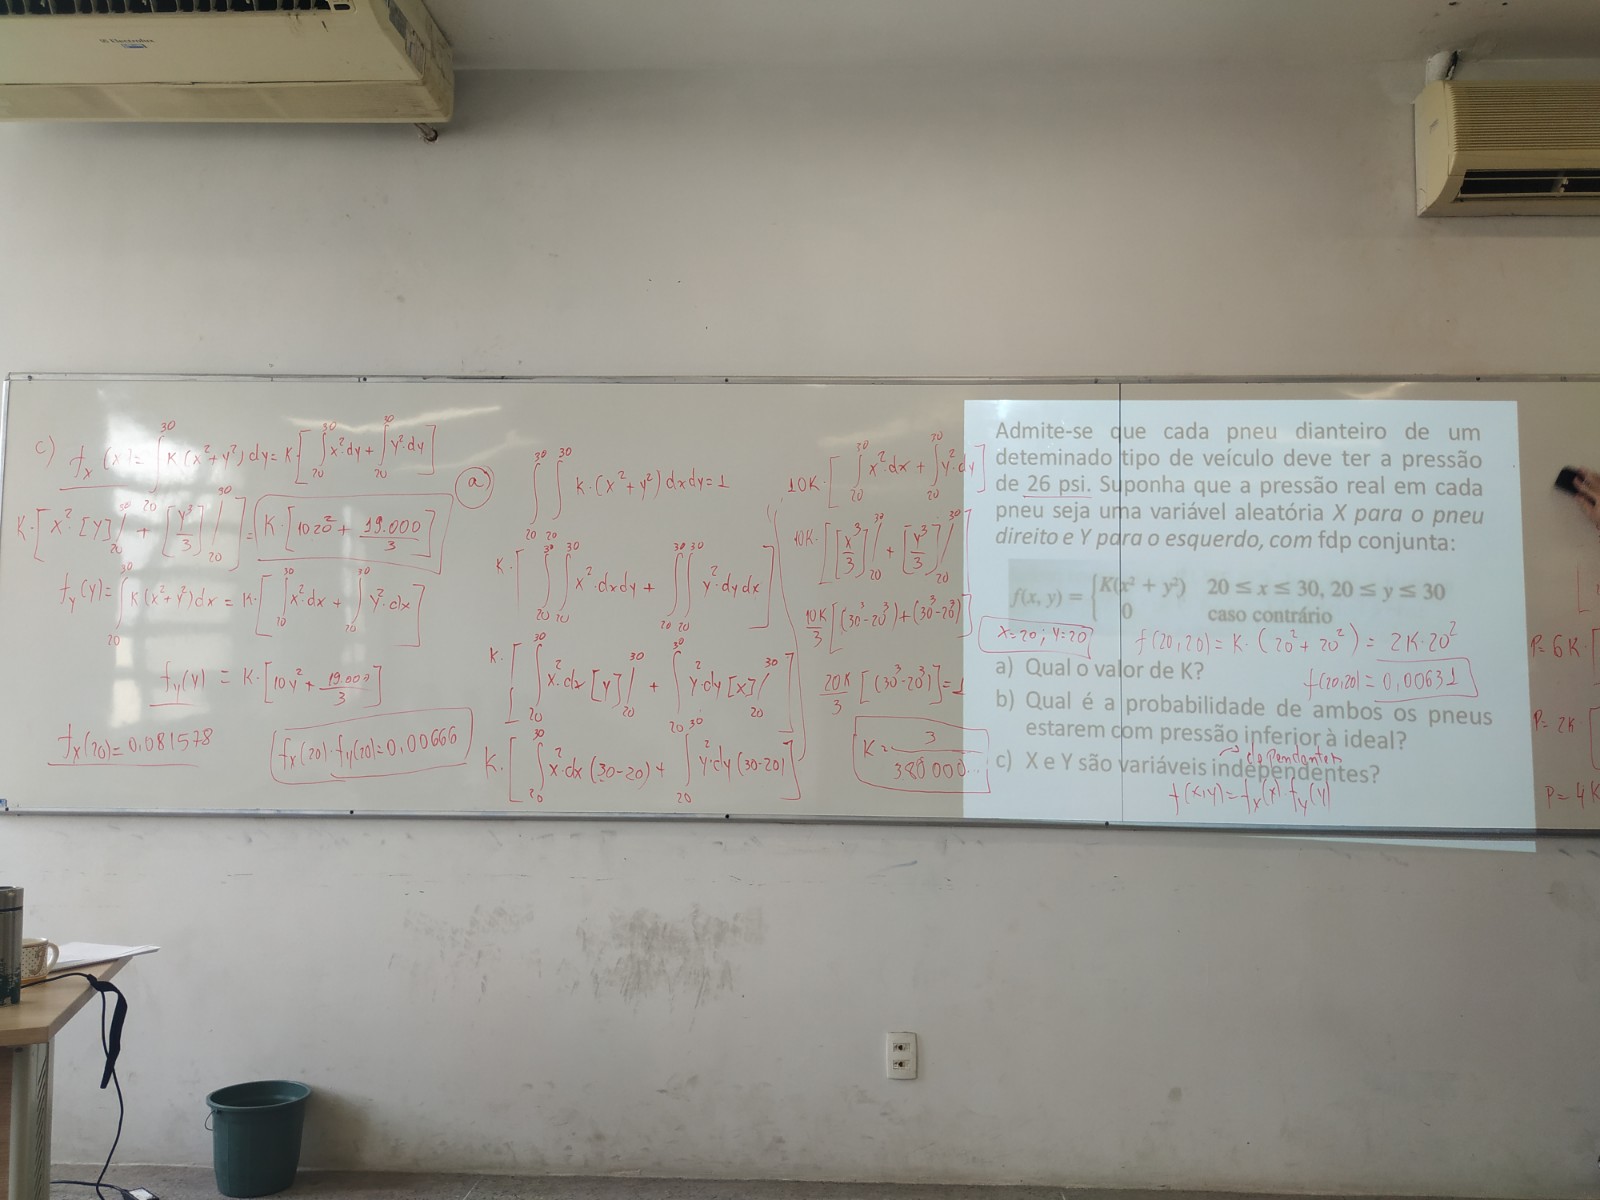 Electrolux
c) fx(x) = ∫₂₀³⁰ K(x²+y²)dy = K[∫₂₀³⁰ x²·dy + ∫₂₀³⁰ y²·dy]
K·[x²·[y]|₂₀³⁰ + [y³/3]|₂₀³⁰] = K·[10·20² + 19.000/3]
fy(y) = ∫₂₀³⁰ K(x²+y²)dx = K·[∫₂₀³⁰ x²·dx + ∫₂₀³⁰ y²·dx]
fy(y) = K·[10y² + 19.000/3]
fx(20) = 0,081578
fx(20)·fy(20) = 0,00666
a) ∫₂₀³⁰ ∫₂₀³⁰ K·(x²+y²)dxdy = 1
K·[∫₂₀³⁰ ∫₂₀³⁰ x²·dxdy + ∫₂₀³⁰ ∫₂₀³⁰ y²·dydx]
K·[∫₂₀³⁰ x²·dx [y]|₂₀³⁰ + ∫₂₀³⁰ y²·dy [x]|₂₀³⁰]
K·[∫₂₀³⁰ x²·dx (30-20) + ∫₂₀³⁰ y²·dy (30-20)]
10K·[∫₂₀³⁰ x²dx + ∫₂₀³⁰ y²·dy]
10K·[[x³/3]|₂₀³⁰ + [y³/3]|₂₀³⁰]
10K/3 [(30³-20³)+(30³-20³)]
20K/3 [(30³-20³)] = 1
K = 3/380000
Admite-se que cada pneu dianteiro de um
deteminado tipo de veículo deve ter a pressão
de 26 psi. Suponha que a pressão real em cada
pneu seja uma variável aleatória X para o pneu
direito e Y para o esquerdo, com fdp conjunta:
f(x, y) = { K(x² + y²) 20 ≤ x ≤ 30, 20 ≤ y ≤ 30
0 caso contrário
x=20; y=20 f(20,20) = K·(20²+20²) = 2K·20²
a) Qual o valor de K?
f(20,20) = 0,00631
b) Qual é a probabilidade de ambos os pneus
estarem com pressão inferior à ideal?
→ dependentes
c) X e Y são variáveis independentes?
f(x,y) = fx(x)·fy(y)
P= 6K·[
P= 2K
P= 4K